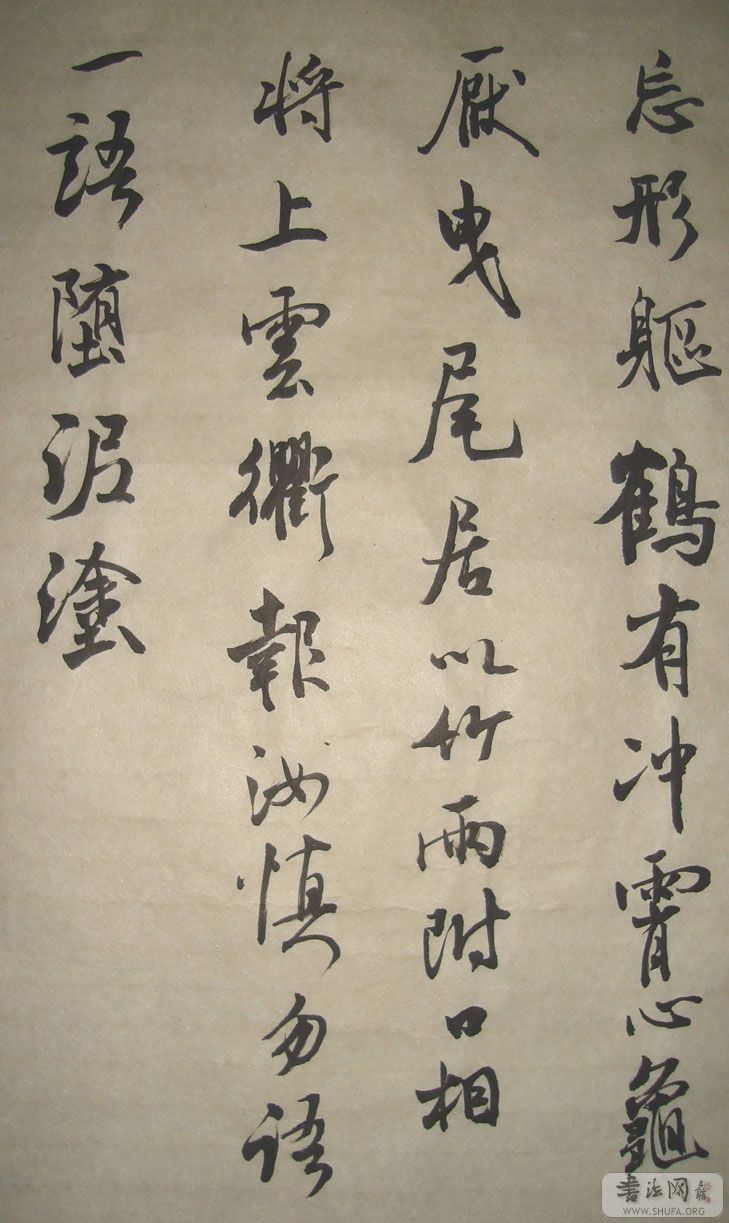 忘形軀鶴有冲霄心龜
厭曳尾居以竹兩附口相
将上雲衢報汝慎勿語
一語堕泥塗
書法网
WWW.SHUFA.ORG